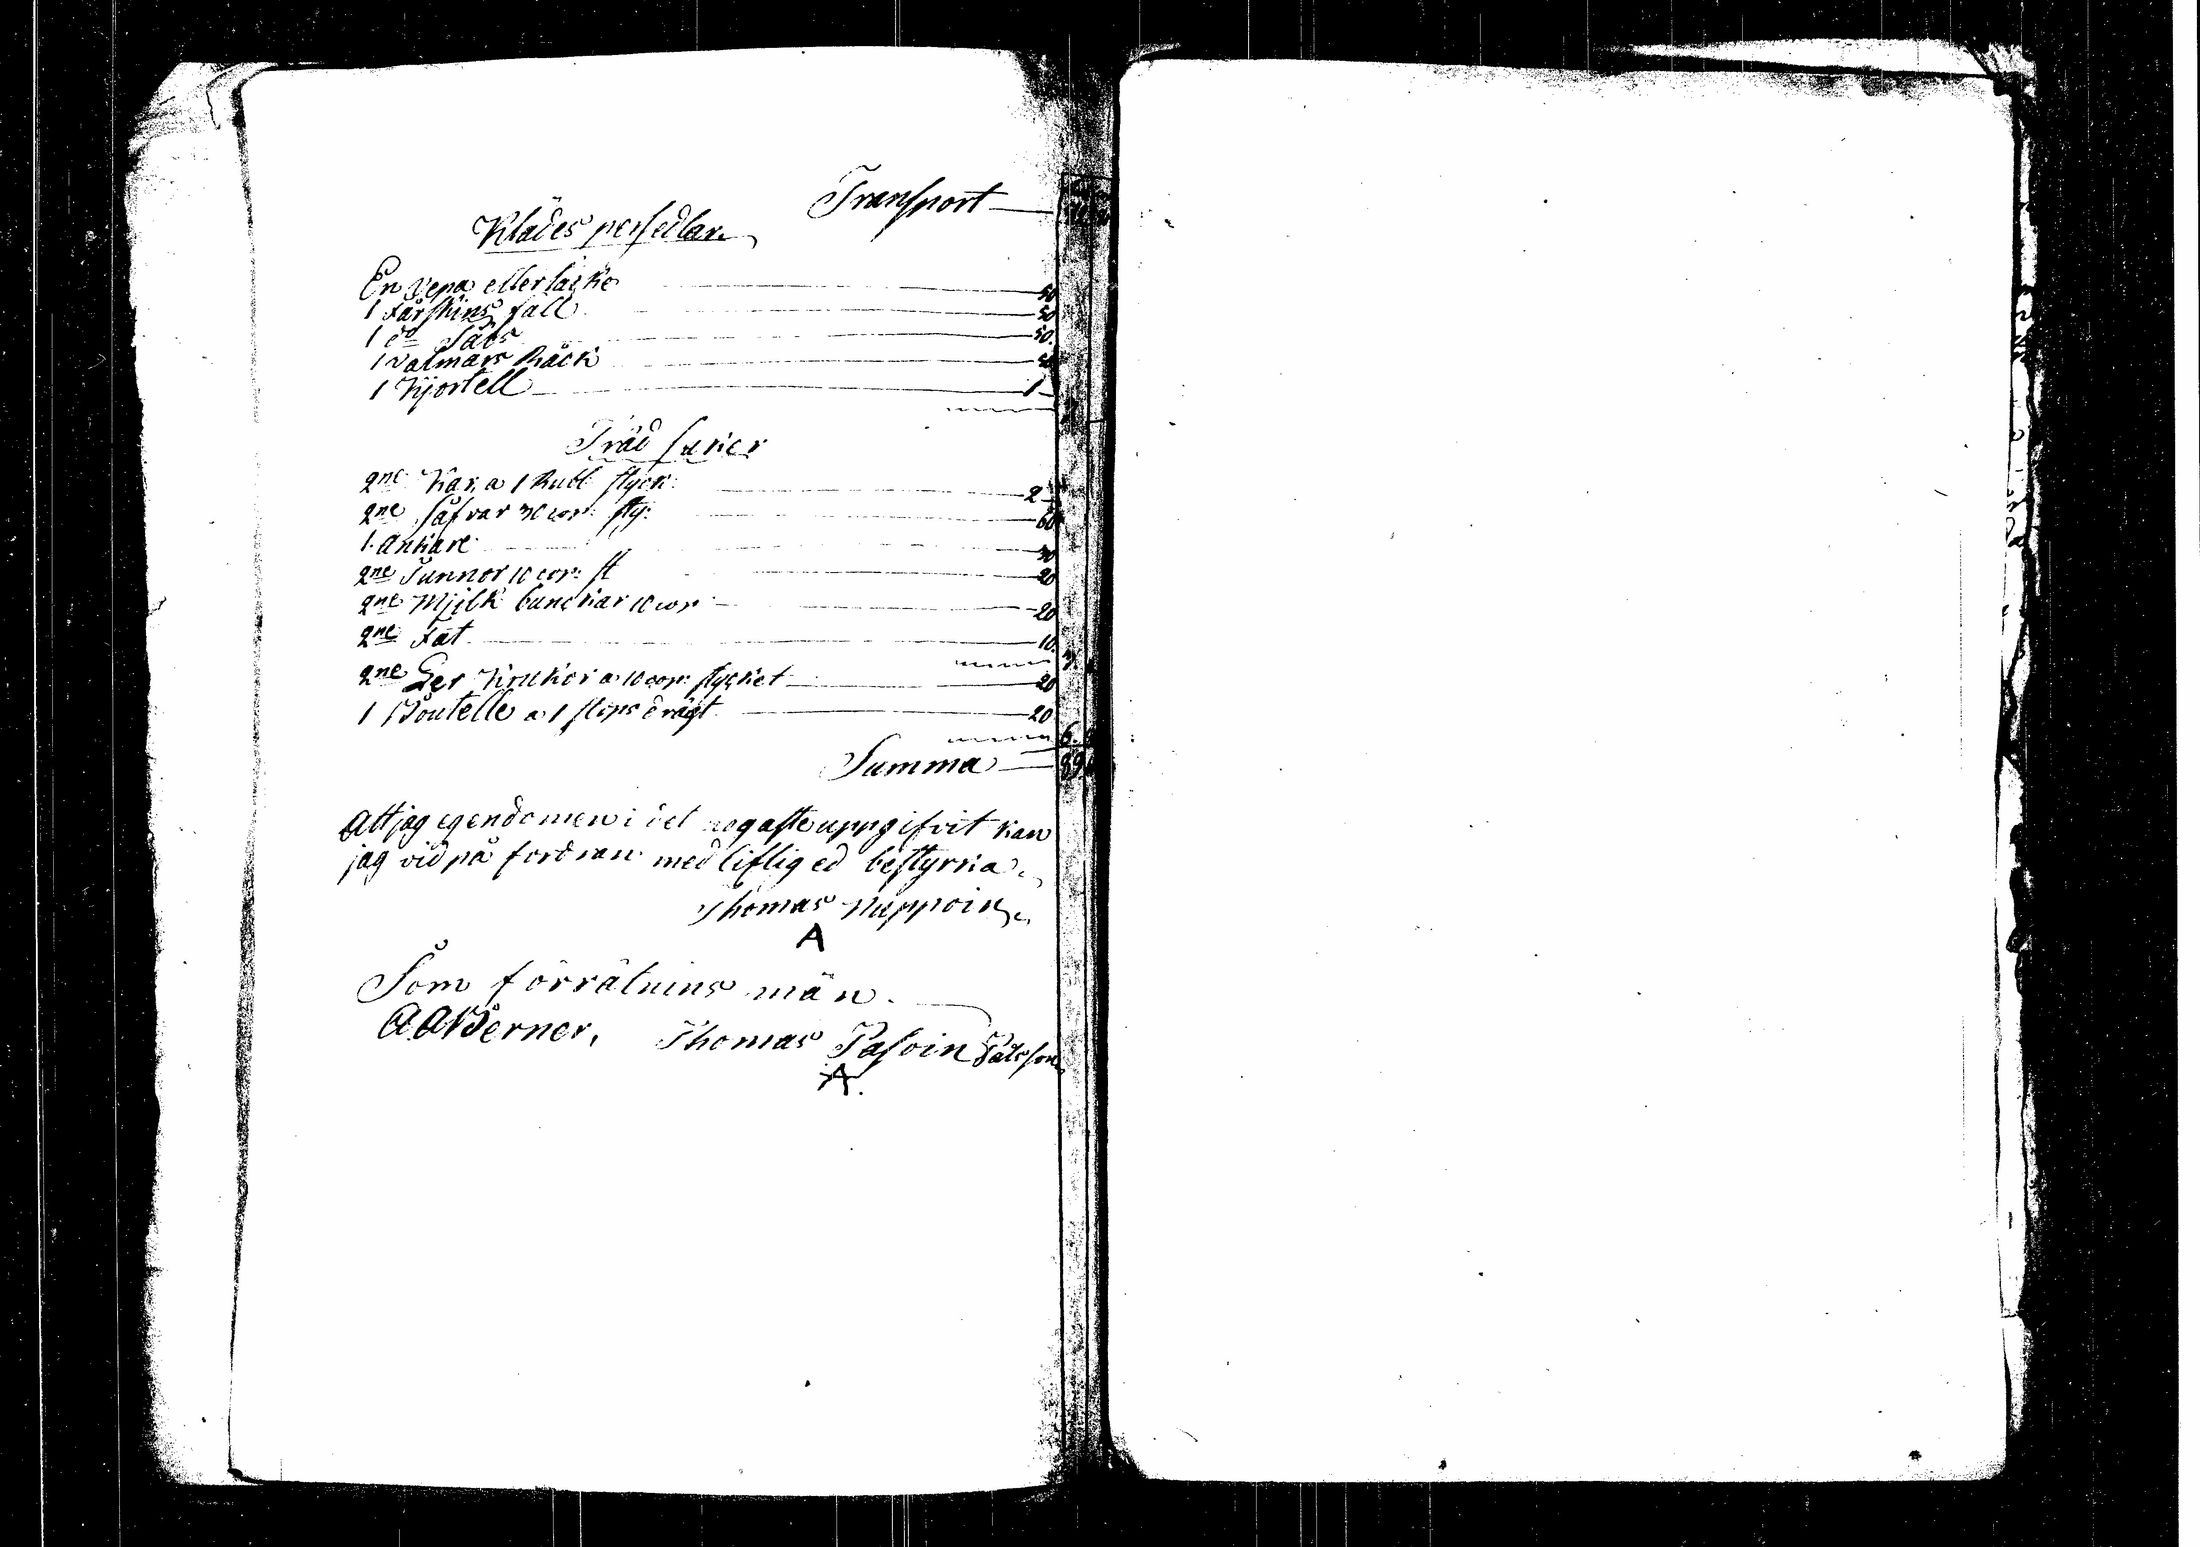 Transport
Klädes persedlar
En Vepa eller täcke 50
1 Fårskins fäll 50
1 do Päls 50.
1 Valmars Råck
1 Kjortell 1
Träd saker
2ne Kar, a 1 Rubl styck: 2
2ne såfvar 30 cop: sty: 60
1. Ankare 30
2ne Tunnor 10 cop: st 20
2ne Mjilk bunckar 10 cop 20
2ne Fat 10.
2ne Ler Krukor a 10 cop: stycket 20
1 Boutelle a 1 stops drägt 20
Summa 89
Att jag egendomen i det nogaste uppgifvit kan
jag vid på fordran med liflig ed bestyrka
Thomas Nuppoin
A
Som förrätnins män.
A. A. Berner, Thomas Pasoin Pålsson
A.